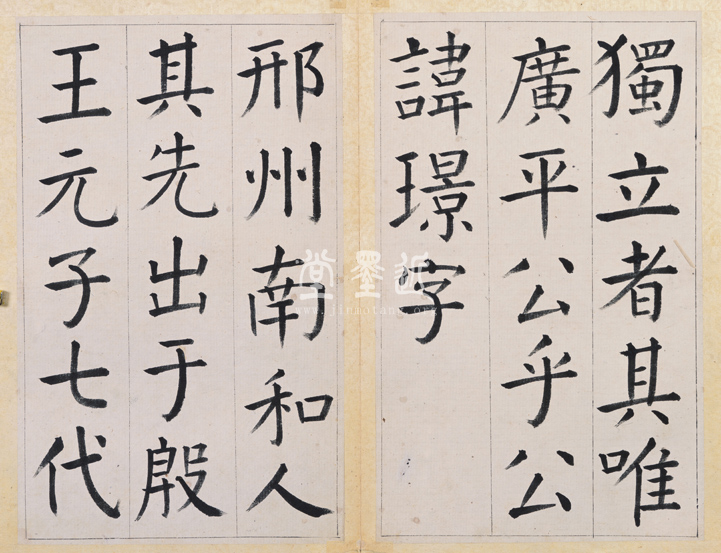 獨立者其唯
廣平公乎公
諱璟字
邢州南和人
其先出于殷
王元子七代
近墨堂
www.jinmotang.org